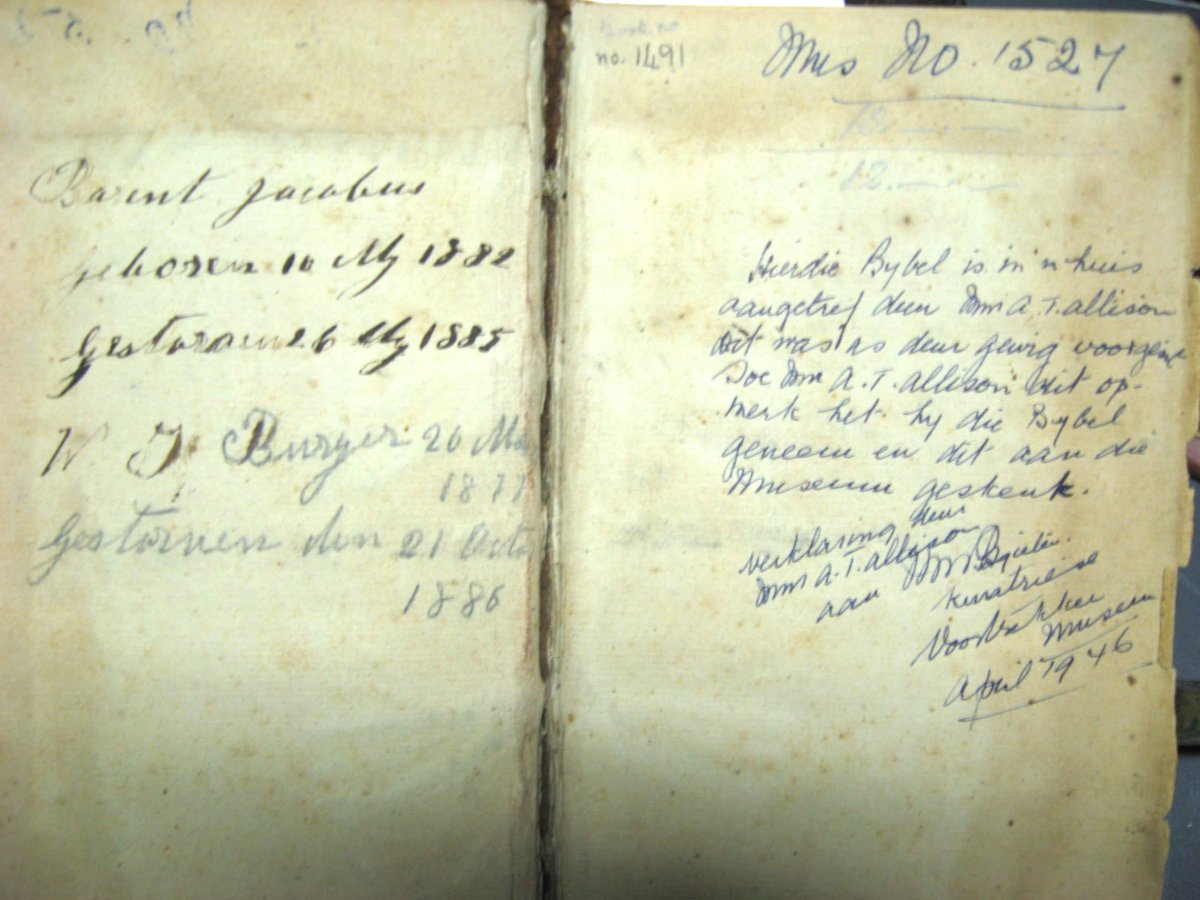 Barent Jacobus
geboren 10 My 1882
Gestorven 26 My 1885
W J Burger 20
1877
Gestorven den 21 Octo
1886
no. 1491
Mus No. 1527
12.
Hierdie Bybel is in 'n huis
aangetref deur Mnr A. T. Allison
dit was as deur gewig
Toe Mnr A. T. Allison dit op-
merk het hy die Bybel
geneem en dit aan die
Museum geskenk.
verklaring deur
Mnr A. T. Allison
aan
kuratriese
Voortrekker
Museum
April 1946